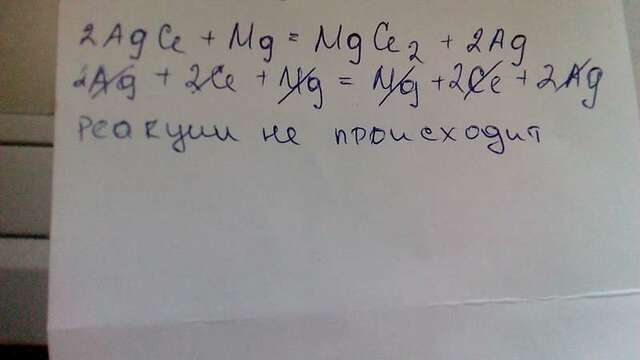 2AgCl + Mg = MgCl₂ + 2Ag
2Ag + 2Cl + Mg = Mg + 2Cl + 2Ag
Реакции не происходит